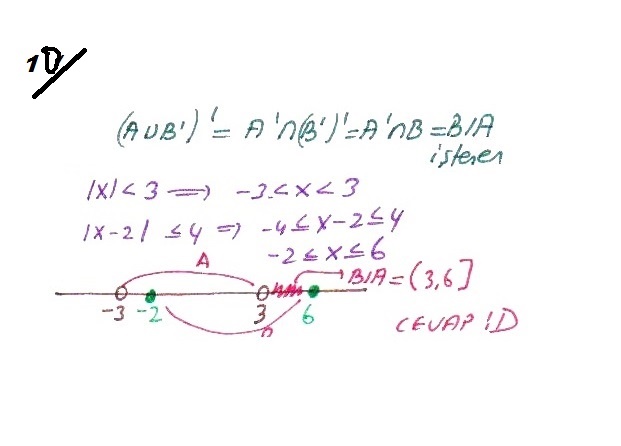 10/
(A∪B')' = A'∩(B')' = A'∩B = B\A
istenen
|X| < 3 ⟹ -3 < x < 3
|X-2| ≤ 4 ⇒ -4 ≤ x-2 ≤ 4
-2 ≤ x ≤ 6
A
B\A = (3,6]
-3 -2 3 6
CEVAP D